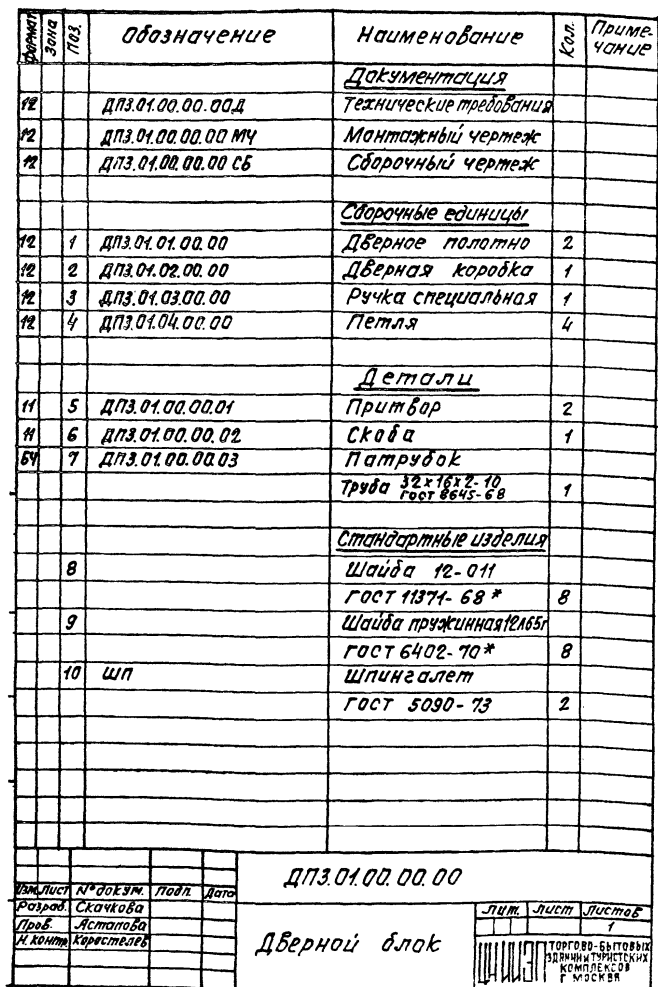 Формат Зона Поз. Обозначение Наименование Кол. Приме-
чание
Документация
12 ДПЗ.01.00.00.00Д Технические требования
12 ДПЗ.01.00.00.00 МЧ Монтажный чертеж
12 ДПЗ.01.00.00.00 СБ Сборочный чертеж
Сборочные единицы
12 1 ДПЗ.01.01.00.00 Дверное полотно 2
12 2 ДПЗ.01.02.00.00 Дверная коробка 1
12 3 ДПЗ.01.03.00.00 Ручка специальная 1
12 4 ДПЗ.01.04.00.00 Петля 4
Детали
11 5 ДПЗ.01.00.00.01 Притвор 2
11 6 ДПЗ.01.00.00.02 Скоба 1
БЧ 7 ДПЗ.01.00.00.03 Патрубок
Труба 32х16х2-10
ГОСТ 8645-68 1
Стандартные изделия
8 Шайба 12-011
ГОСТ 11371-68* 8
9 Шайба пружинная 12Л65г
ГОСТ 6402-70* 8
10 ШП Шпингалет
ГОСТ 5090-73 2
ДПЗ.01.00.00.00
Изм. Лист № докум. Подп. Дата
Разраб. Скачкова
Пров. Астапова
Н.контр. Коростелев
Дверной блок
Лит. Лист Листов
1
ЦНИИЭП
ТОРГОВО-БЫТОВЫХ
ЗДАНИЙ И ТУРИСТСКИХ
КОМПЛЕКСОВ
Г МОСКВА